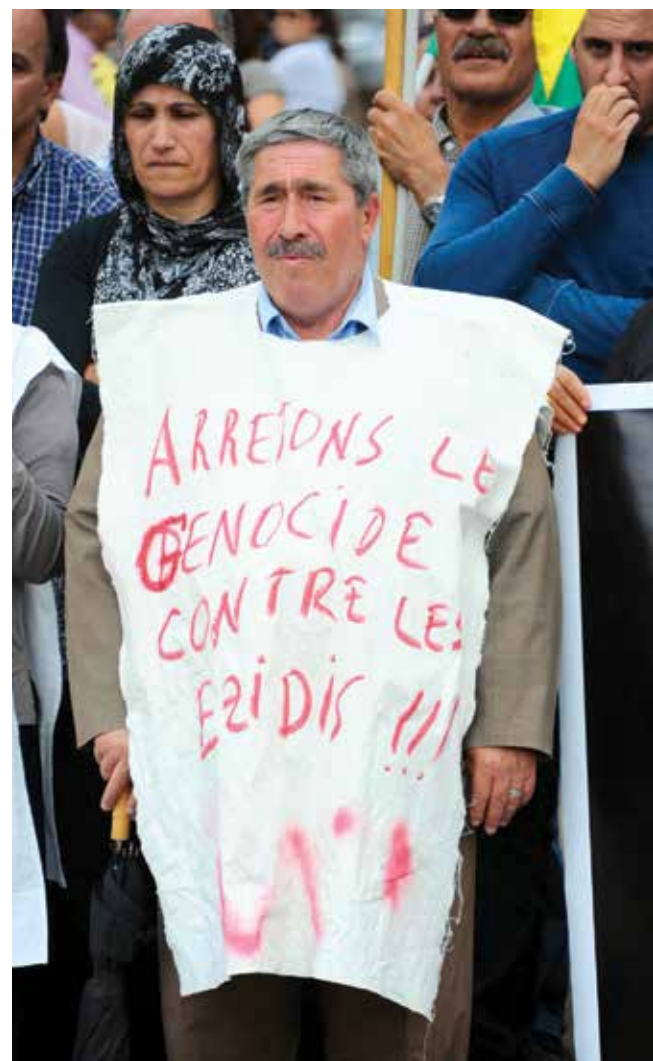 ARRETONS LE
GENOCIDE
CONTRE LES
EZIDIS !!!